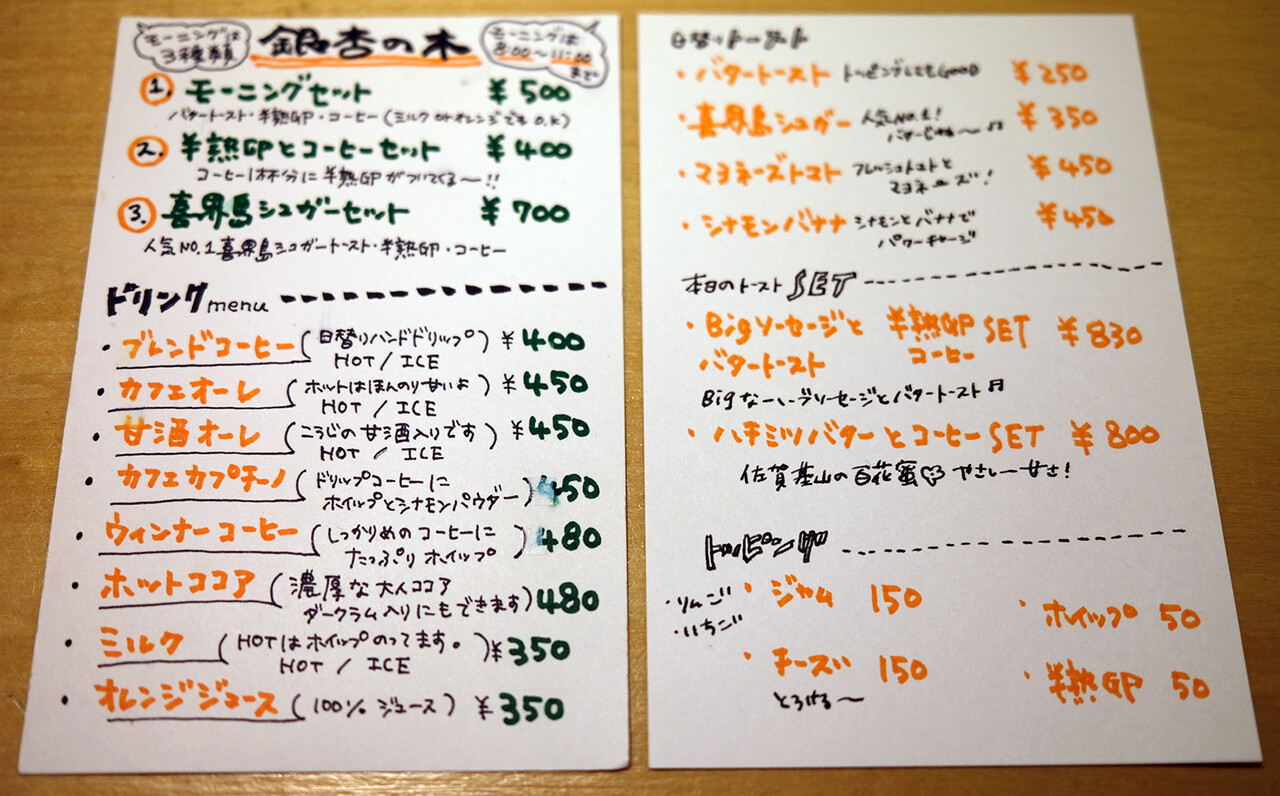 モーニングは
3種類
銀杏の木
モーニングは
8:00〜11:00
まで
1. モーニングセット ¥500
バタートースト・半熟GP・コーヒー(ミルク orオレンジでも O.K)
2. 半熟GPとコーヒーセット ¥400
コーヒー1杯分に半熟GPがついてくる〜!!
3. 喜界島シュガーセット ¥700
人気NO.1喜界島シュガートースト・半熟GP・コーヒー
ドリンクmenu
・ブレンドコーヒー(日替りハンドドリップ) ¥400
HOT / ICE
・カフェオーレ(ホットはほんのり甘いよ ¥450
HOT / ICE
・甘酒オーレ(こうじの甘酒入りです) ¥450
HOT / ICE
・カフェカプチーノ(ドリップコーヒーに
ホイップとシナモンパウダー) 450
・ウィンナーコーヒー(しっかりめのコーヒーに
たっぷりホイップ) 480
・ホットココア(濃厚な大人ココア
ダークラム入りにもできます) 480
・ミルク(HOTはホイップのってます。
HOT / ICE) ¥350
・オレンジジュース(100% ジュース) ¥350
日替りトースト
・バタートースト トッピングしてもGOOD ¥250
・喜界島シュガー 人気NO.1! ¥350
・マヨネーズトマト フレッシュトマトと
マヨネーズ! ¥450
・シナモンバナナ シナモンとバナナで
パワーチャージ ¥450
本日のトースト SET
・Bigソーセージと
バタートースト
半熟GP
コーヒー
SET ¥830
Bigなーいソーセージとバタートースト♬
・ハチミツバターとコーヒーSET ¥800
佐賀基山の百花蜜♡ やさしー甘さ!
トッピング
・りんご
・いちご
・ジャム 150
・ホイップ 50
・チーズ 150
とろける〜
・半熟GP 50